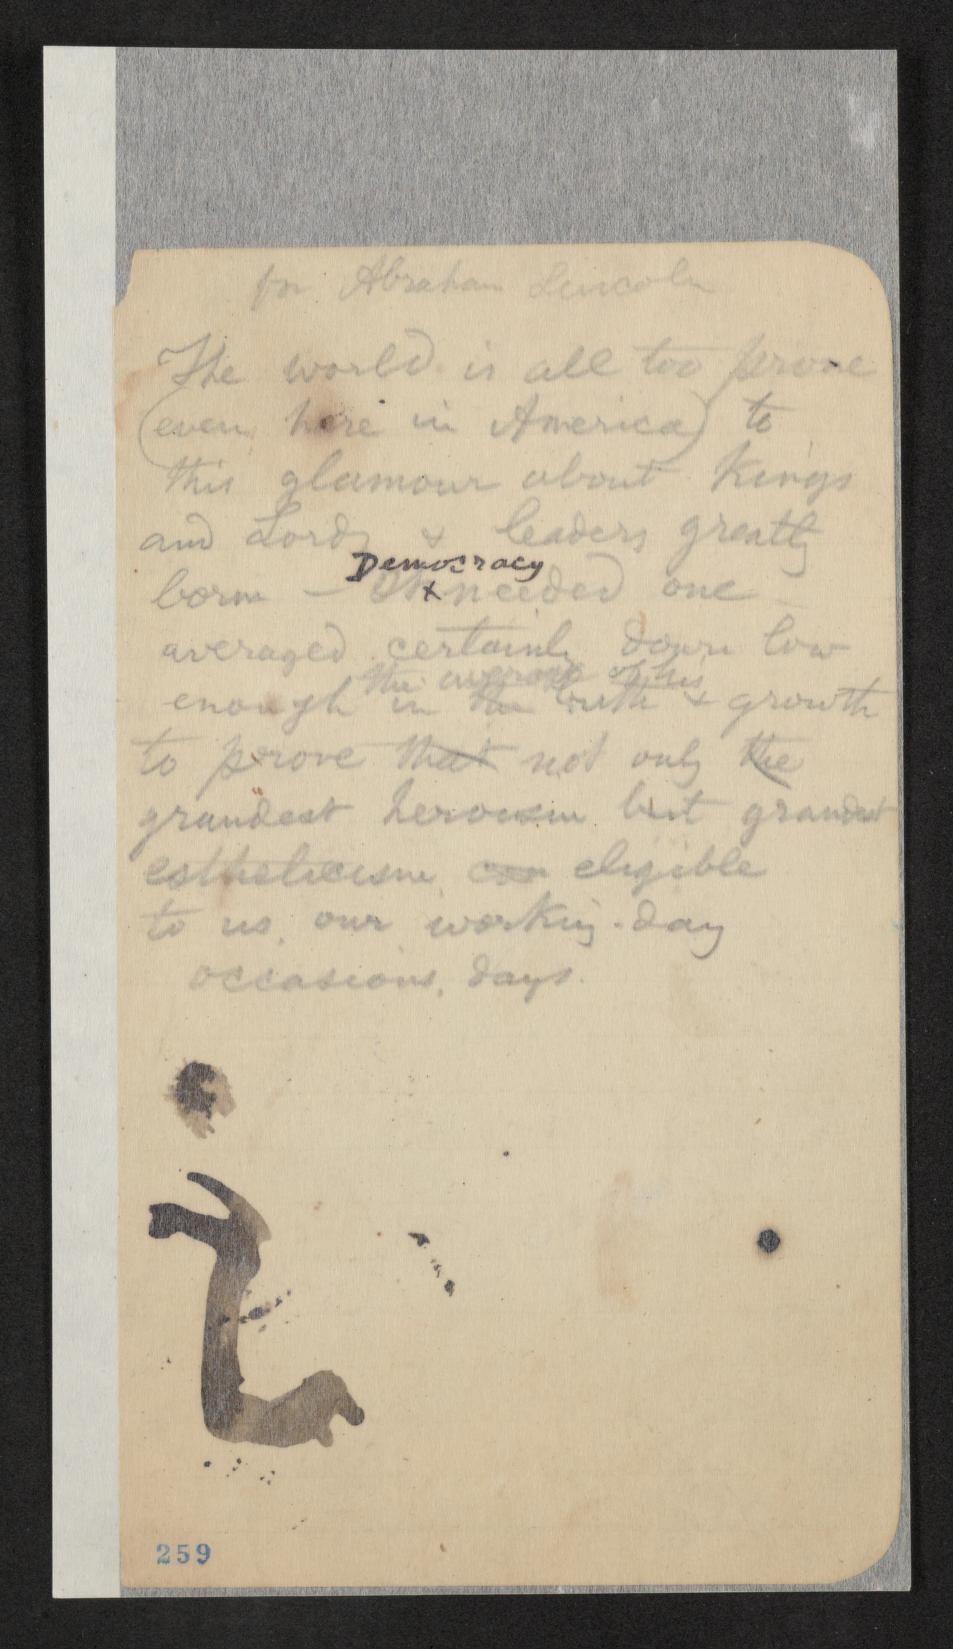 for Abraham Lincoln
The world is all too prone
(even here in America) to
this glamour about Kings
and Lords & leaders greatly
Democracy
born — It needed one
averaged certainly down low
the average of his
enough in the birth & growth
to prove that not only the
grandest heroism but grandest
estheticism can eligible
to us, our working-day
occasions, days.
259